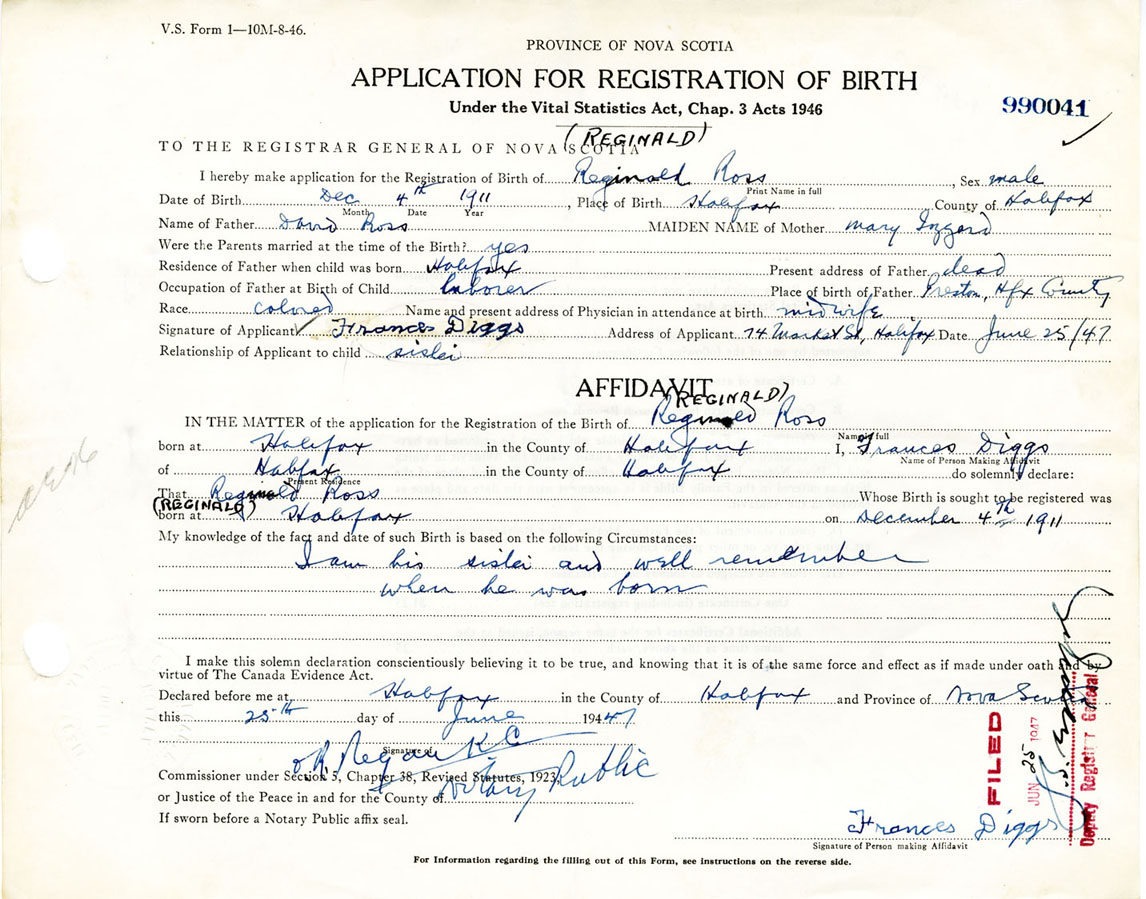 V.S. Form 1—10M-8-46.
PROVINCE OF NOVA SCOTIA
APPLICATION FOR REGISTRATION OF BIRTH
Under the Vital Statistics Act, Chap. 3 Acts 1946
990041
(REGINALD)
TO THE REGISTRAR GENERAL OF NOVA SCOTIA
I hereby make application for the Registration of Birth of Reginald Ross, Sex male
Print Name in full
Date of Birth Dec 4th 1911, Place of Birth Halifax County of Halifax
Month Date Year
Name of Father David Ross MAIDEN NAME of Mother Mary
Were the Parents married at the time of the Birth? yes
Residence of Father when child was born Halifax Present address of Father dead
Occupation of Father at Birth of Child laborer Place of birth of Father Preston, Hfx County
Race colored Name and present address of Physician in attendance at birth midwife
Signature of Applicant Frances Diggs Address of Applicant 74 Market St, Halifax Date June 25/47
Relationship of Applicant to child sister
AFFIDAVIT
(REGINALD)
IN THE MATTER of the application for the Registration of the Birth of Reginald Ross
Name in full
born at Halifax in the County of Halifax I, Frances Diggs
Name of Person Making Affidavit
of Halifax in the County of Halifax do solemnly declare:
Present Residence
That Reginald Ross Whose Birth is sought to be registered was
(REGINALD)
born at Halifax on December 4th 1911
My knowledge of the fact and date of such Birth is based on the following Circumstances:
I am his sister and well remember
when he was born
I make this solemn declaration conscientiously believing it to be true, and knowing that it is of the same force and effect as if made under oath and by
virtue of The Canada Evidence Act.
Declared before me at Halifax in the County of Halifax and Province of Nova Scotia
this 25th day of June 1947
Regan K C
Signature of
Commissioner under Section 5, Chapter 38, Revised Statutes, 1923,
Notary Public
or Justice of the Peace in and for the County of
If sworn before a Notary Public affix seal.
FILED
JUN 25 1947
Deputy Registrar General
Frances Diggs
Signature of Person making Affidavit
For Information regarding the filling out of this Form, see instructions on the reverse side.